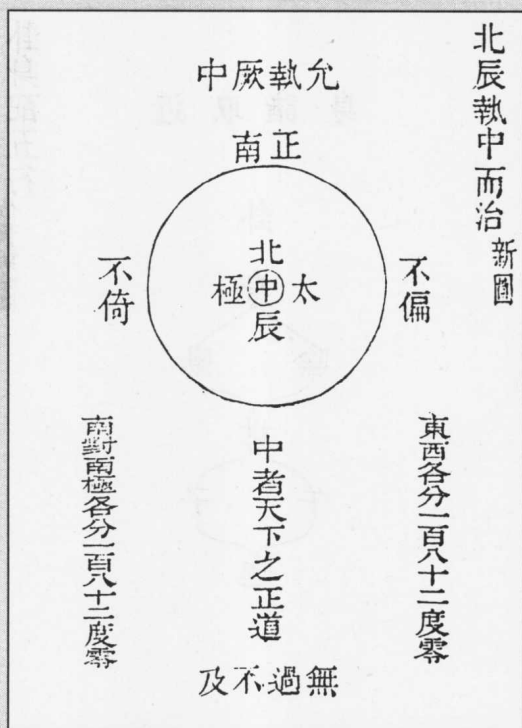 北辰執中而治新圖
允執厥中
正南
不偏
北
太中極
辰
不倚
東西各分一百八十二度零
中者天下之正道
南對南極各分一百八十二度零
無過不及